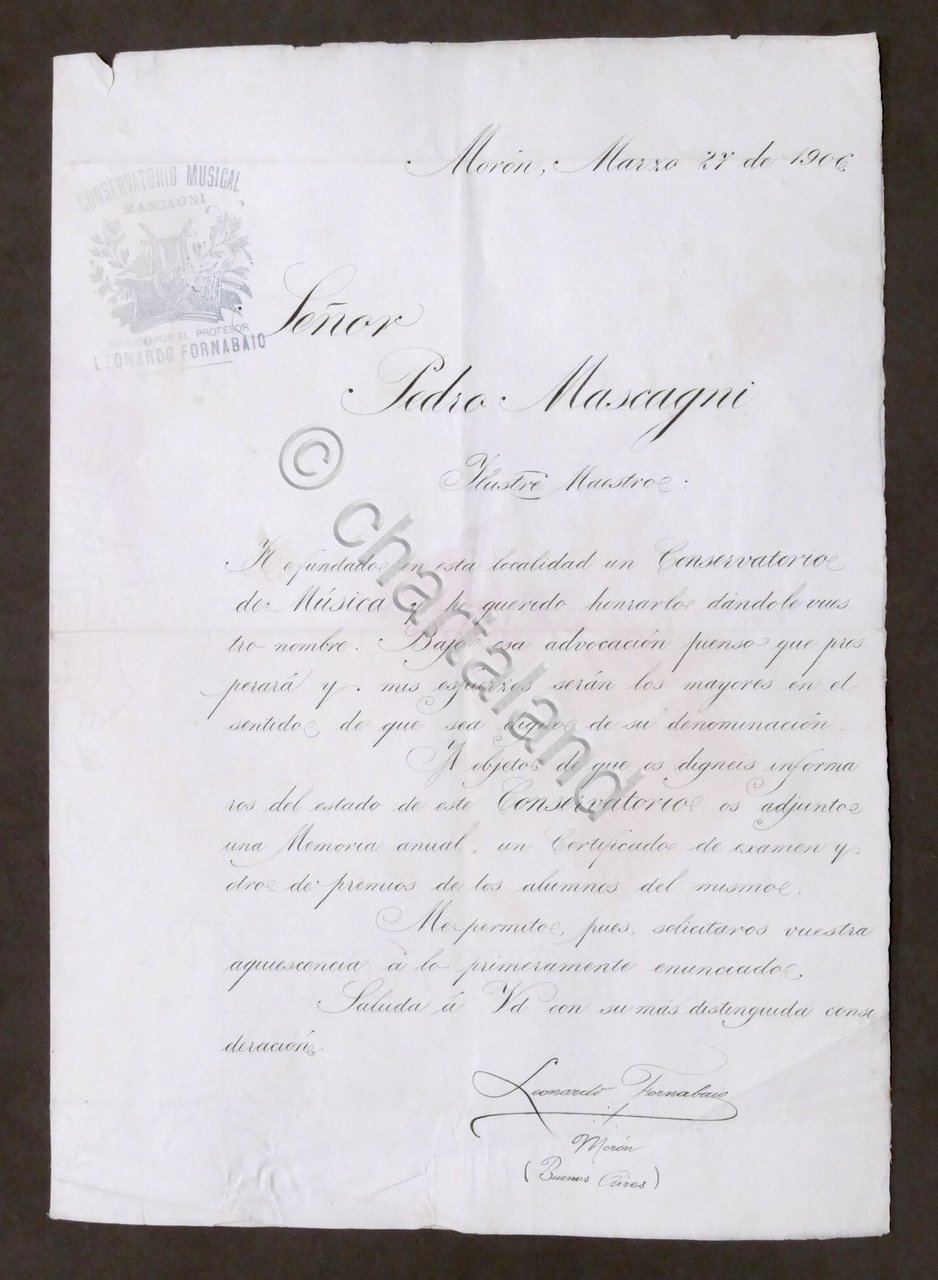 Morón, Marzo 27 de 1906
CONSERVATORIO MUSICAL
MASCAGNI
DIRIGIDO POR EL PROFESOR
LEONARDO FORNABAIO
Señor
Pedro Mascagni
Ilustre Maestro:
He fundado en esta localidad un Conservatorio
de Música y he querido honrarlo dándole vues
tro nombre. Bajo esa advocación pienso que pros
perará y mis esfuerzos serán los mayores en el
sentido de que sea digno de su denominación.
Al objeto de que os digneis informa
ros del estado de este Conservatorio os adjunto
una Memoria anual, un Certificado de examen y
otro de premios de los alumnos del mismo.
Me permito, pues, solicitaros vuestra
aquiescencia à lo primeramente enunciado.
Saluda á Vd con su más distinguida consi
deración.
Leonardo Fornabaio
Morón
(Buenos Aires)
© chartaland